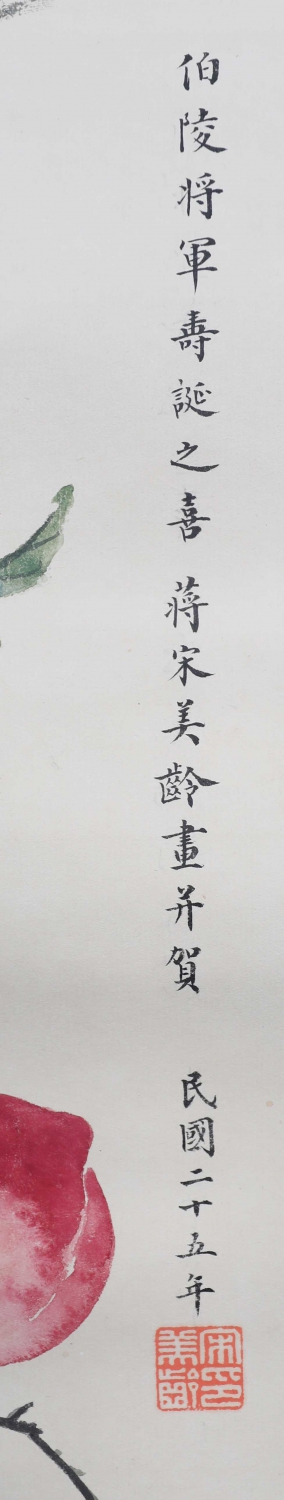 伯陵将軍壽誕之喜 蔣宋美齡畫并賀 民國二十五年
宋美齡印